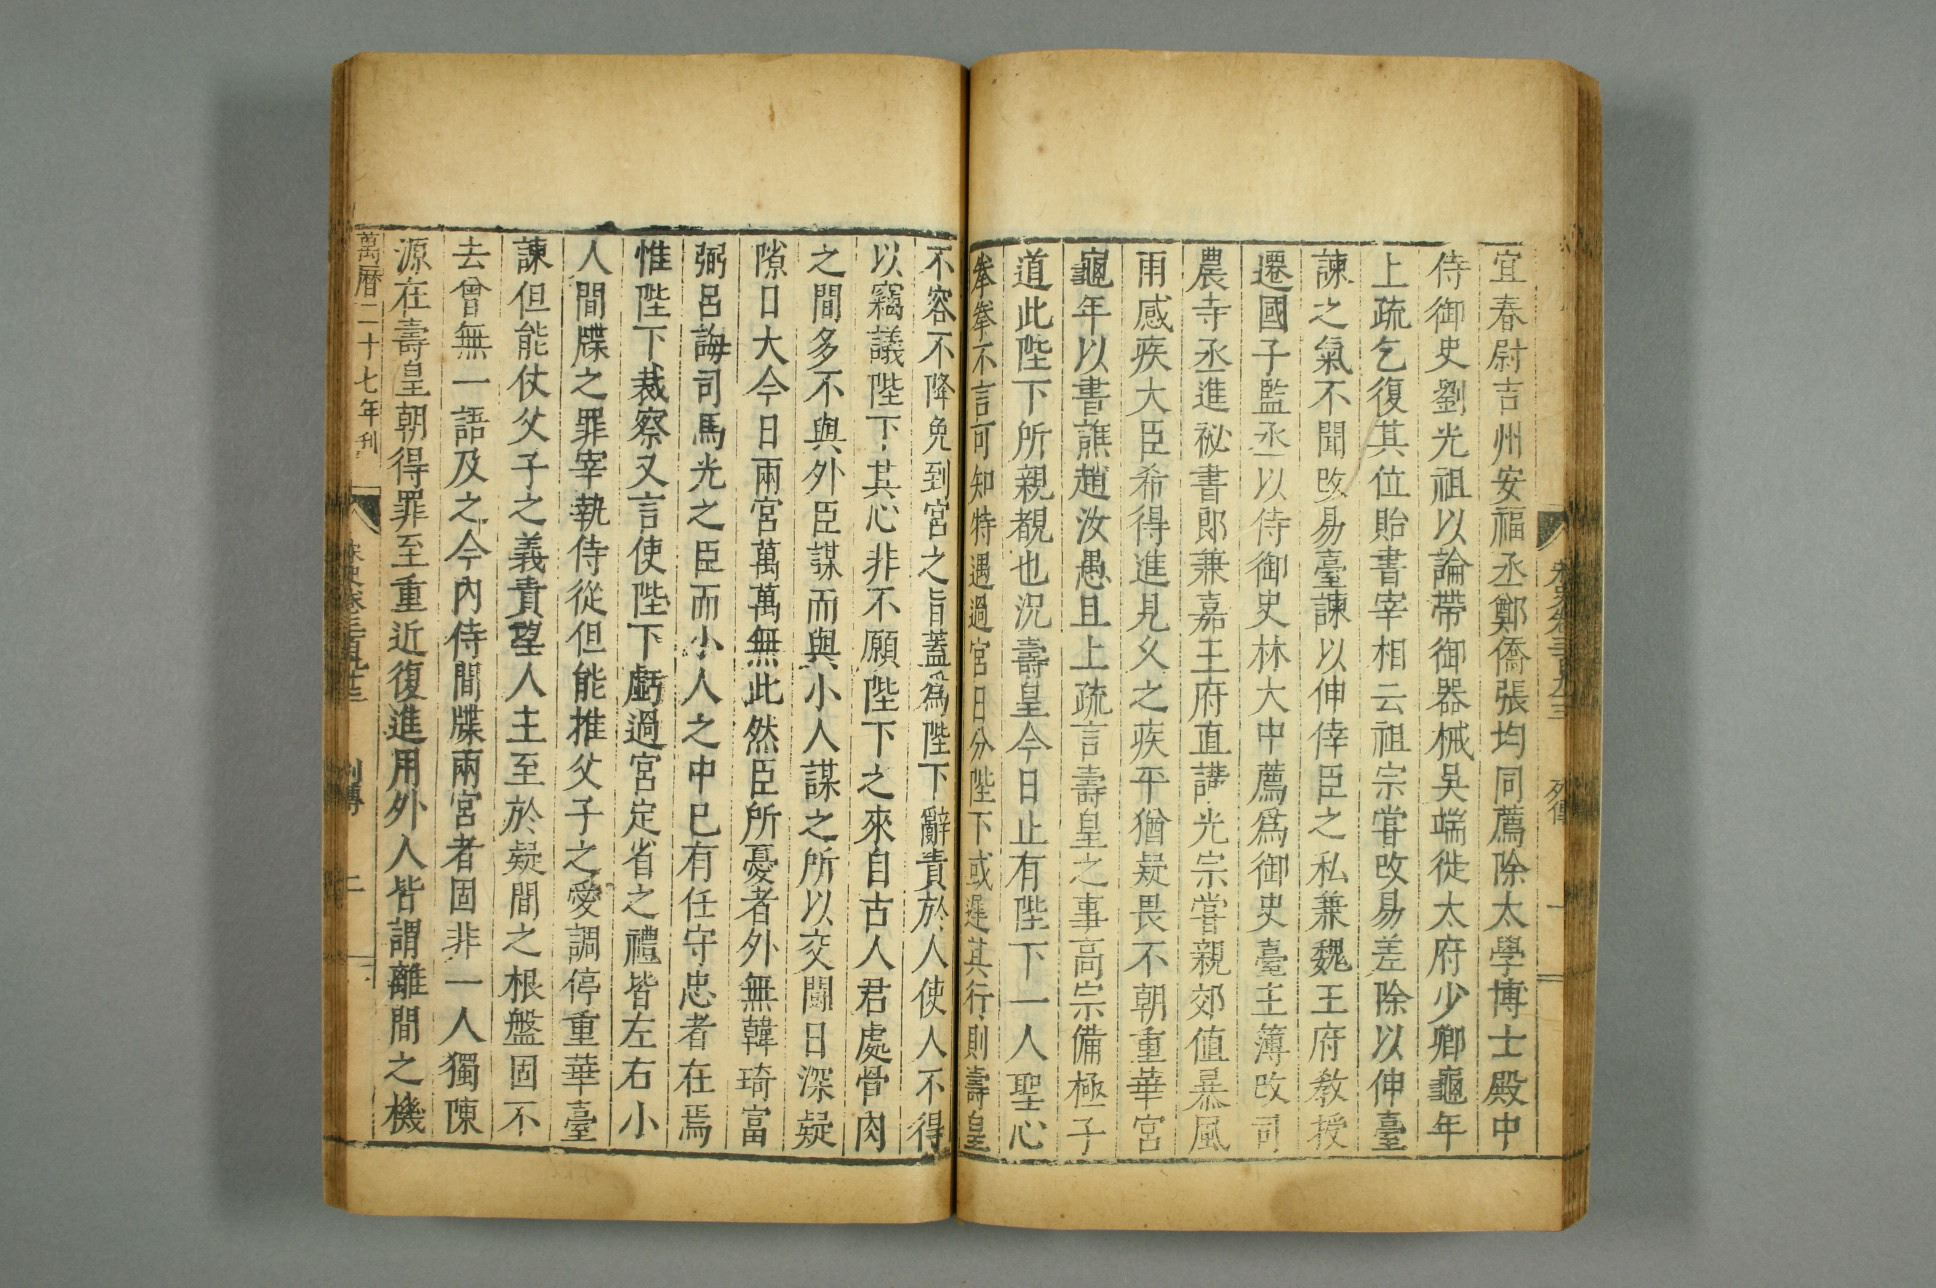 宜春尉吉州安福丞鄭僑張均同薦除太學博士殿中
侍御史劉光祖以論帶御器械吳端徙太府少卿龜年
上疏乞復其位貽書宰相云祖宗嘗改易差除以伸臺
諫之氣不聞改易臺諫以伸倖臣之私兼魏王府教授
遷國子監丞以侍御史林大中薦爲御史臺主簿改司
農寺丞進祕書郎兼嘉王府直講光宗嘗親郊值暴風
雨感疾大臣希得進見久之疾平猶疑畏不朝重華宮
龜年以書譙趙汝愚且上疏言壽皇之事高宗備極子
道此陛下所親覩也況壽皇今日止有陛下一人聖心
拳拳不言可知特遇過宮日分陛下或遲其行則壽皇
不容不降免到宮之旨蓋爲陛下辭責於人使人不得
以竊議陛下其心非不願陛下之來自古人君處骨肉
之間多不與外臣謀而與小人謀之所以交鬬日深疑
隙日大今日兩宮萬萬無此然臣所憂者外無韓琦富
弼呂誨司馬光之臣而小人之中已有任守忠者在焉
惟陛下裁察又言使陛下虧過宮定省之禮皆左右小
人間牒之罪宰執侍從但能推父子之愛調停重華臺
諫但能仗父子之義責望人主至於疑間之根盤固不
去曾無一語及之今內侍間牒兩宮者固非一人獨陳
源在壽皇朝得罪至重近復進用外人皆謂離間之機
萬曆二十七年刊
宋史卷三百九十三 列傳 二